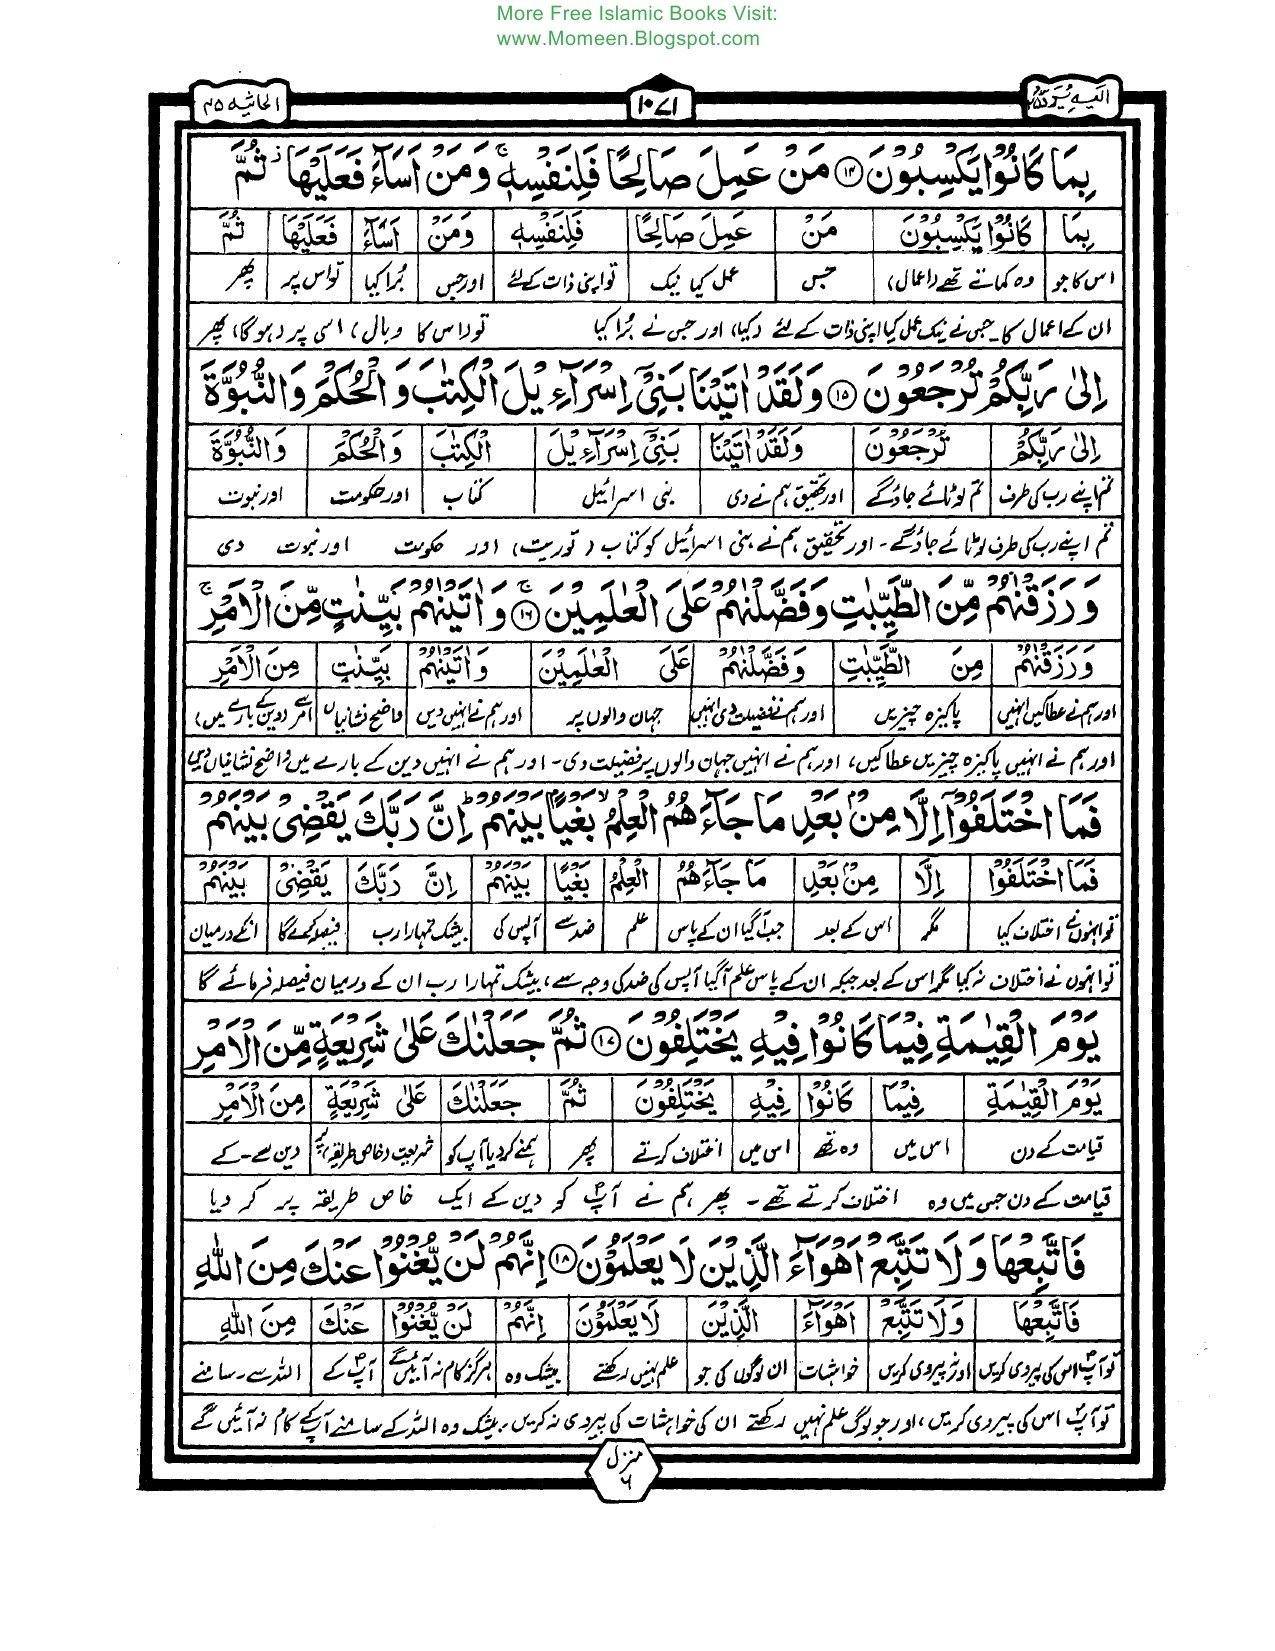 More Free Islamic Books Visit:
www.Momeen.Blogspot.com
الیہ یرد ۲۵
۱۰۷۱
الجاثیہ ۴۵
بِمَا كَانُوْا يَكْسِبُوْنَ ۱۴ مَنْ عَمِلَ صَالِحًا فَلِنَفْسِهٖ ۚ وَمَنْ اَسَآءَ فَعَلَيْهَا ۫ ثُمَّ
بِمَا كَانُوْا يَكْسِبُوْنَ مَنْ عَمِلَ صَالِحًا فَلِنَفْسِهٖ وَمَنْ اَسَآءَ فَعَلَيْهَا ثُمَّ
اس کا جو وہ کماتے تھے (اعمال) جس عمل کیا نیک تو اپنی ذات کے لئے اور جس بُرا کیا تو اس پر پھر
ان کے اعمال کا۔ جس نے نیک عمل کیا اپنی ذات کے لئے (کیا) اور جس نے بُرا کیا تو (اس کا وبال) اسی پر (ہوگا)، پھر
اِلٰى رَبِّكُمْ تُرْجَعُوْنَ ۱۵ وَلَقَدْ اٰتَيْنَا بَنِيْٓ اِسْرَآءِيْلَ الْكِتٰبَ وَالْحُكْمَ وَالنُّبُوَّةَ
اِلٰى رَبِّكُمْ تُرْجَعُوْنَ وَلَقَدْ اٰتَيْنَا بَنِيْٓ اِسْرَآءِيْلَ الْكِتٰبَ وَالْحُكْمَ وَالنُّبُوَّةَ
تم اپنے رب کی طرف تم لوٹائے جاؤ گے اور تحقیق ہم نے دی بنی اسرائیل کتاب اور حکومت اور نبوت
تم اپنے رب کی طرف لوٹائے جاؤ گے۔ اور تحقیق ہم نے بنی اسرائیل کو کتاب (توریت) اور حکومت اور نبوت دی
وَرَزَقْنٰهُمْ مِّنَ الطَّيِّبٰتِ وَفَضَّلْنٰهُمْ عَلَى الْعٰلَمِيْنَ ۚ ۱۶ وَاٰتَيْنٰهُمْ بَيِّنٰتٍ مِّنَ الْاَمْرِ ۚ
وَرَزَقْنٰهُمْ مِنَ الطَّيِّبٰتِ وَفَضَّلْنٰهُمْ عَلَى الْعٰلَمِيْنَ وَاٰتَيْنٰهُمْ بَيِّنٰتٍ مِنَ الْاَمْرِ
اور ہم نے عطا کیں انہیں پاکیزہ چیزیں اور ہم نے فضیلت دی انہیں جہان والوں پر اور ہم نے انہیں دیں واضح نشانیاں امر سے (دین کے بارے میں)
اور ہم نے انہیں پاکیزہ چیزیں عطا کیں، اور ہم نے انہیں جہان والوں پر فضیلت دی۔ اور ہم نے انہیں دین کے بارے میں واضح نشانیاں دیں
فَمَا اخْتَلَفُوْٓا اِلَّا مِنْۢ بَعْدِ مَا جَآءَهُمُ الْعِلْمُ ۙ بَغْيًۢا بَيْنَهُمْ ؕ اِنَّ رَبَّكَ يَقْضِيْ بَيْنَهُمْ
فَمَا اخْتَلَفُوْٓا اِلَّا مِنْۢ بَعْدِ مَا جَآءَهُمُ الْعِلْمُ بَغْيًۢا بَيْنَهُمْ اِنَّ رَبَّكَ يَقْضِيْ بَيْنَهُمْ
تو انہوں نے اختلاف کیا مگر اس کے بعد جب آگیا ان کے پاس علم ضد سے آپس کی بیشک تمہارا رب فیصلہ کرے گا انکے درمیان
تو انہوں نے اختلاف نہ کیا مگر اس کے بعد جبکہ ان کے پاس علم آگیا آپس کی ضد کی وجہ سے، بیشک تمہارا رب ان کے درمیان فیصلہ فرمائے گا
يَوْمَ الْقِيٰمَةِ فِيْمَا كَانُوْا فِيْهِ يَخْتَلِفُوْنَ ۱۷ ثُمَّ جَعَلْنٰكَ عَلٰى شَرِيْعَةٍ مِّنَ الْاَمْرِ
يَوْمَ الْقِيٰمَةِ فِيْمَا كَانُوْا فِيْهِ يَخْتَلِفُوْنَ ثُمَّ جَعَلْنٰكَ عَلٰى شَرِيْعَةٍ مِنَ الْاَمْرِ
قیامت کے دن اس میں وہ تھے اس میں اختلاف کرتے پھر ہم نے کر دیا آپ کو شریعت (خاص طریقہ) پر دین سے۔ کے
قیامت کے دن جس میں وہ اختلاف کرتے تھے۔ پھر ہم نے آپؐ کو دین کے ایک خاص طریقہ پر کر دیا
فَاتَّبِعْهَا وَلَا تَتَّبِعْ اَهْوَآءَ الَّذِيْنَ لَا يَعْلَمُوْنَ ۱۸ اِنَّهُمْ لَنْ يُّغْنُوْا عَنْكَ مِنَ اللّٰهِ
فَاتَّبِعْهَا وَلَا تَتَّبِعْ اَهْوَآءَ الَّذِيْنَ لَا يَعْلَمُوْنَ اِنَّهُمْ لَنْ يُّغْنُوْا عَنْكَ مِنَ اللّٰهِ
تو آپؐ اس کی پیروی کریں اور نہ پیروی کریں خواہشات ان لوگوں کی جو علم نہیں رکھتے بیشک وہ ہرگز کام نہ آئیں گے آپؐ کے اللہ سے۔ سامنے
تو آپؐ اس کی پیروی کریں، اور جو لوگ علم نہیں رکھتے ان کی خواہشات کی پیروی نہ کریں، بیشک وہ اللہ کے سامنے آپؐ کے کام نہ آئیں گے
منزل ۶